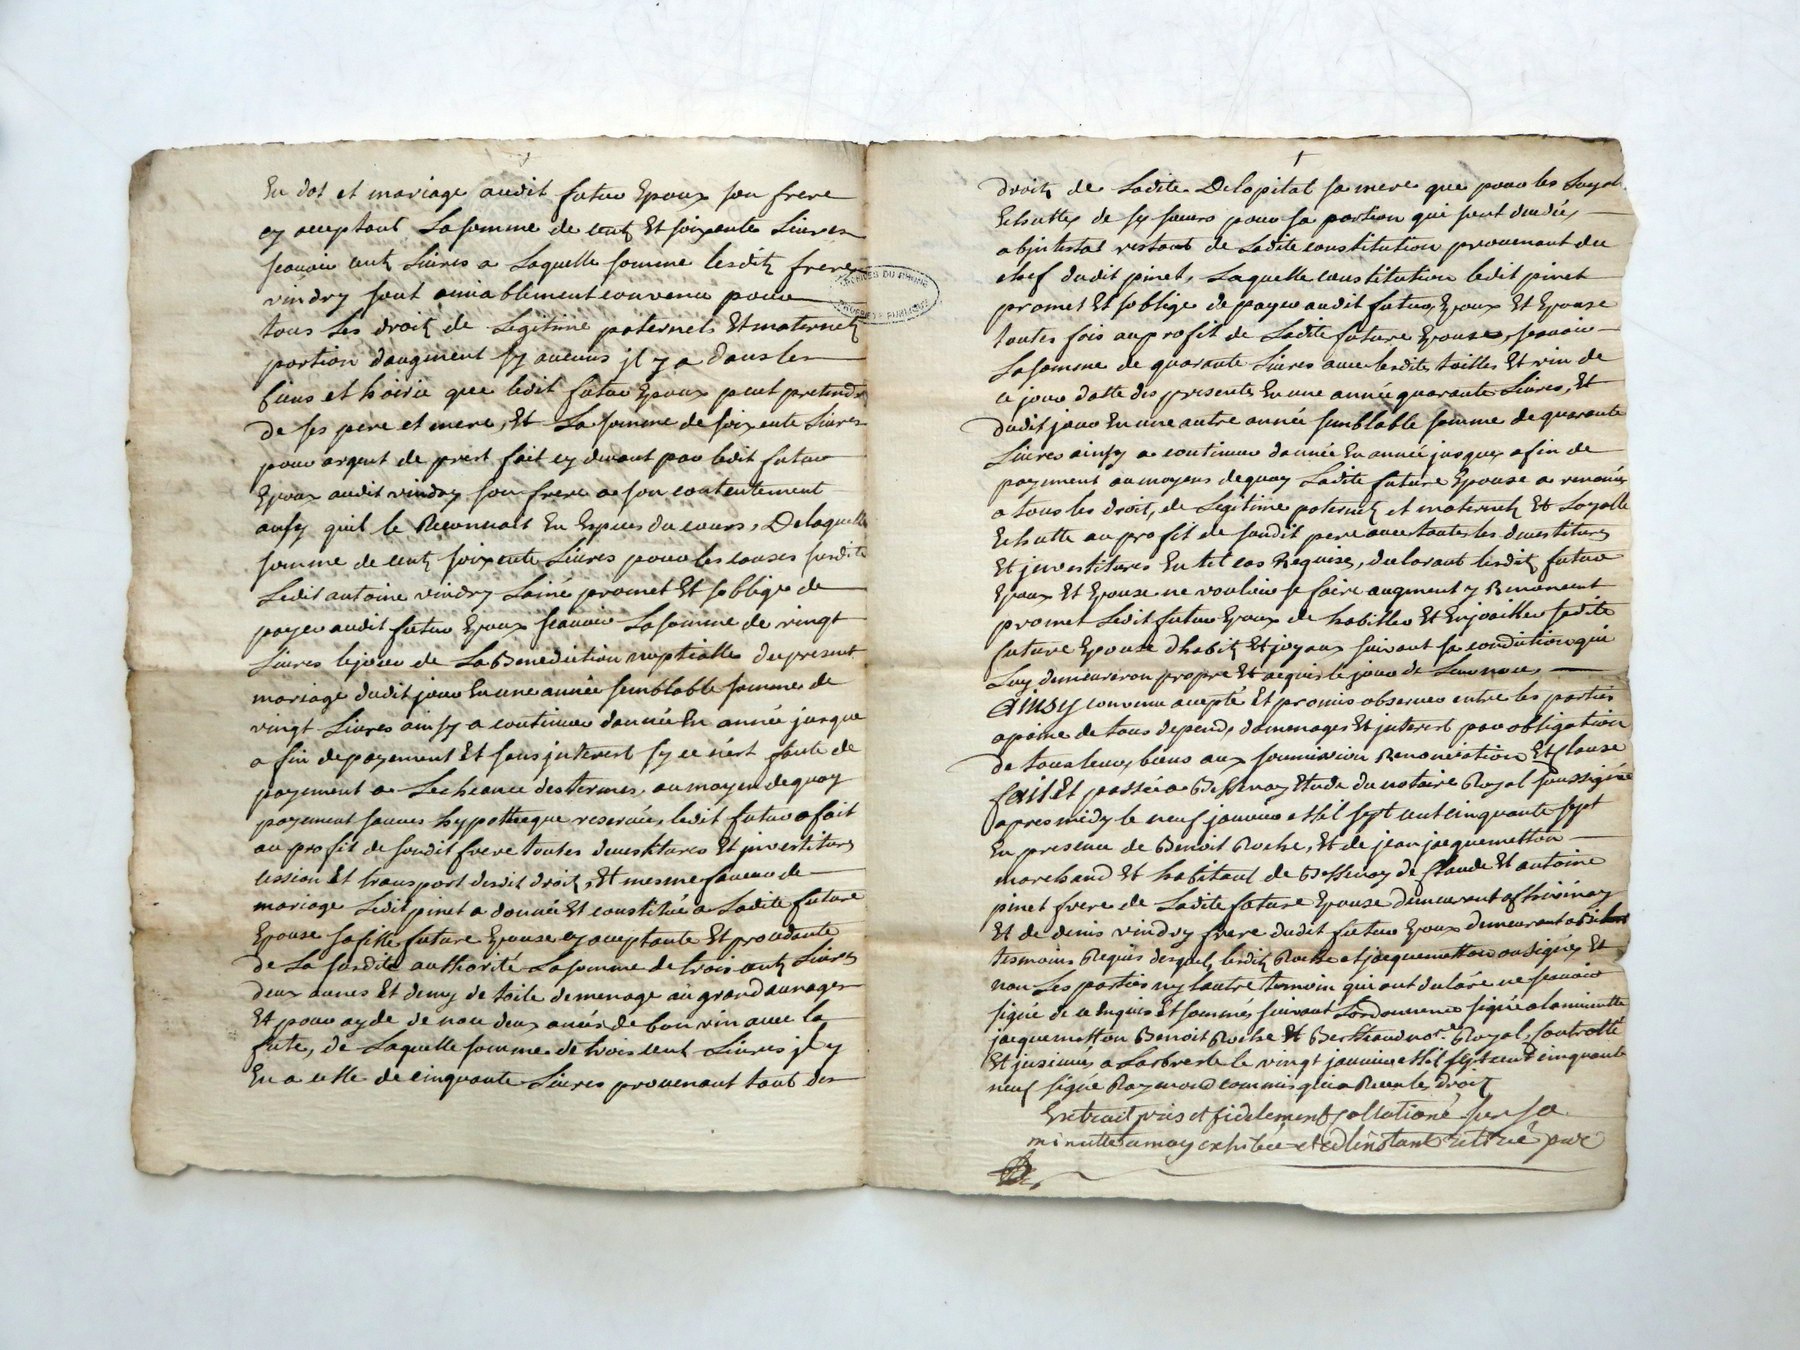 En dot et mariage audit futur Epoux son frere
cy acceptant La somme de cent Et soixente Livres
scavoir cent Livres a Laquelle somme lesdits freres
vindry sont amiablement convenu pour
tous Ses droits de Legitime paternels Et maternels
portion daugment sy aucuns jl y a dans les
biens et hoirie que ledit futur Epoux peut pretendre
de ses pere et mere, Et La somme de soixente Livres
pour argent de prest fait cy devant par ledit futur
Epoux audit vindry son frere a son contentement
ainsy quil le Reconnoit En Espece du cours, De laquelle
somme de cent soixente Livres pour les causes susdites
Ledit antoine vindry Lainé promet Et soblige de
payer audit futur Epoux scavoir La somme de vingt
Livres le jour de La Benediction nuptialle du present
mariage dudit jour En une année semblable somme de
vingt Livres ainsy a continuer dannée En année jusque
a fin de payement Et sans jnterest sy ce n'est faute de
payement a Lecheance des termes, au moyen de quoy
payement sauves hypotheque reservée, ledit futur a fait
au profit de sondit frere toutes devestitures Et jnvestitures
cession Et transport desdit droits, Et mesme faveur de
mariage Ledit pinet a donné Et constitué a Ladite future
Epouse sa fille future Epouse cy acceptante Et procedante
de La susdite authorité La somme de trois cents Livres
deux aunes Et demy de toile de menage au grand aunage
Et pour ayde de noce deux anées de bon vin avec la
fute, de Laquelle somme de trois cent Livres jl y
En a celle de cinquante Livres provenant tant des
ARCHIVES DU RHÔNE
PROPRIÉTÉ PUBLIQUE
droits de Ladite Delopital sa mere que pour les Loyal
Echuttes de sy sœurs pour sa portion qui sont decedés
abjntestat restant de Ladite constitution provenant du
chef dudit pinet, Laquelle constitution ledit pinet
promet Et soblige de payer audit futur Epoux Et Epouse
toutes fois au profit de Ladite future Epouse, scavoir
La somme de quarante Livres avec lesdites toilles Et vin de
ce jour datte des presentes En une année quarante Livres, Et
dudit jour En une autre année semblable somme de quarante
Livres ainsy a continuer dannée En année jusques a fin de
payement au moyens de quoy Ladite future Epouse a renoncé
a tous les droits, de Legitime paternels et maternels Et Loyalle
Echutte au profit de sondit pere avec toutes les devestitures
Et jnvestitures En tel cas Requises, declarant lesdits futur
Epoux Et Epouse ne vouloir se faire augment y Renoncent
promet Ledit futur Epoux de habiller Et Enjoailler sadite
future Epouse dhabits Et joyaux suivant sa condition qui
Luy demeureron propre Et acquis le jour de Leur noces,
Ainsy convenu accepté Et promis observer entre les parties
a peine de tous depends, domenages Et jnterest par obligation
de tous leurs biens aux soumission Renonciation Et Clause
fait Et passé a Bessenay Etude du notaire Royal soussigné
apres midy le neuf janvier mil sept cent cinquante sept
En presence de Benoit Roche, Et de jean jacquemetton
marchand Et habitant de Bessenay de Claude Et antoine
pinet frere de Ladite future Epouse demeurant a Chevinay
Et de denis vindry frere dudit futur Epoux demeurant a
tesmoins Requis desquels lesdits Roche et jacquemetton ont signés Et
non Les parties ny lautre temoin qui ont declaré ne scavoir
signé de ce Enquis Et sommés suivant Lordonnence signé a la minutte
jacquemetton Benoit Roche Et Bertheaud no.re Royal, Controllé
Et jnsinué, a Larbresle le vingt janvier mil sept cent cinquante
neuf signé Raymond commis qui a Receu les droits
Extrait pris et fidelement collationé sur sa
minutte a moy exhibée et a linstant retirée par